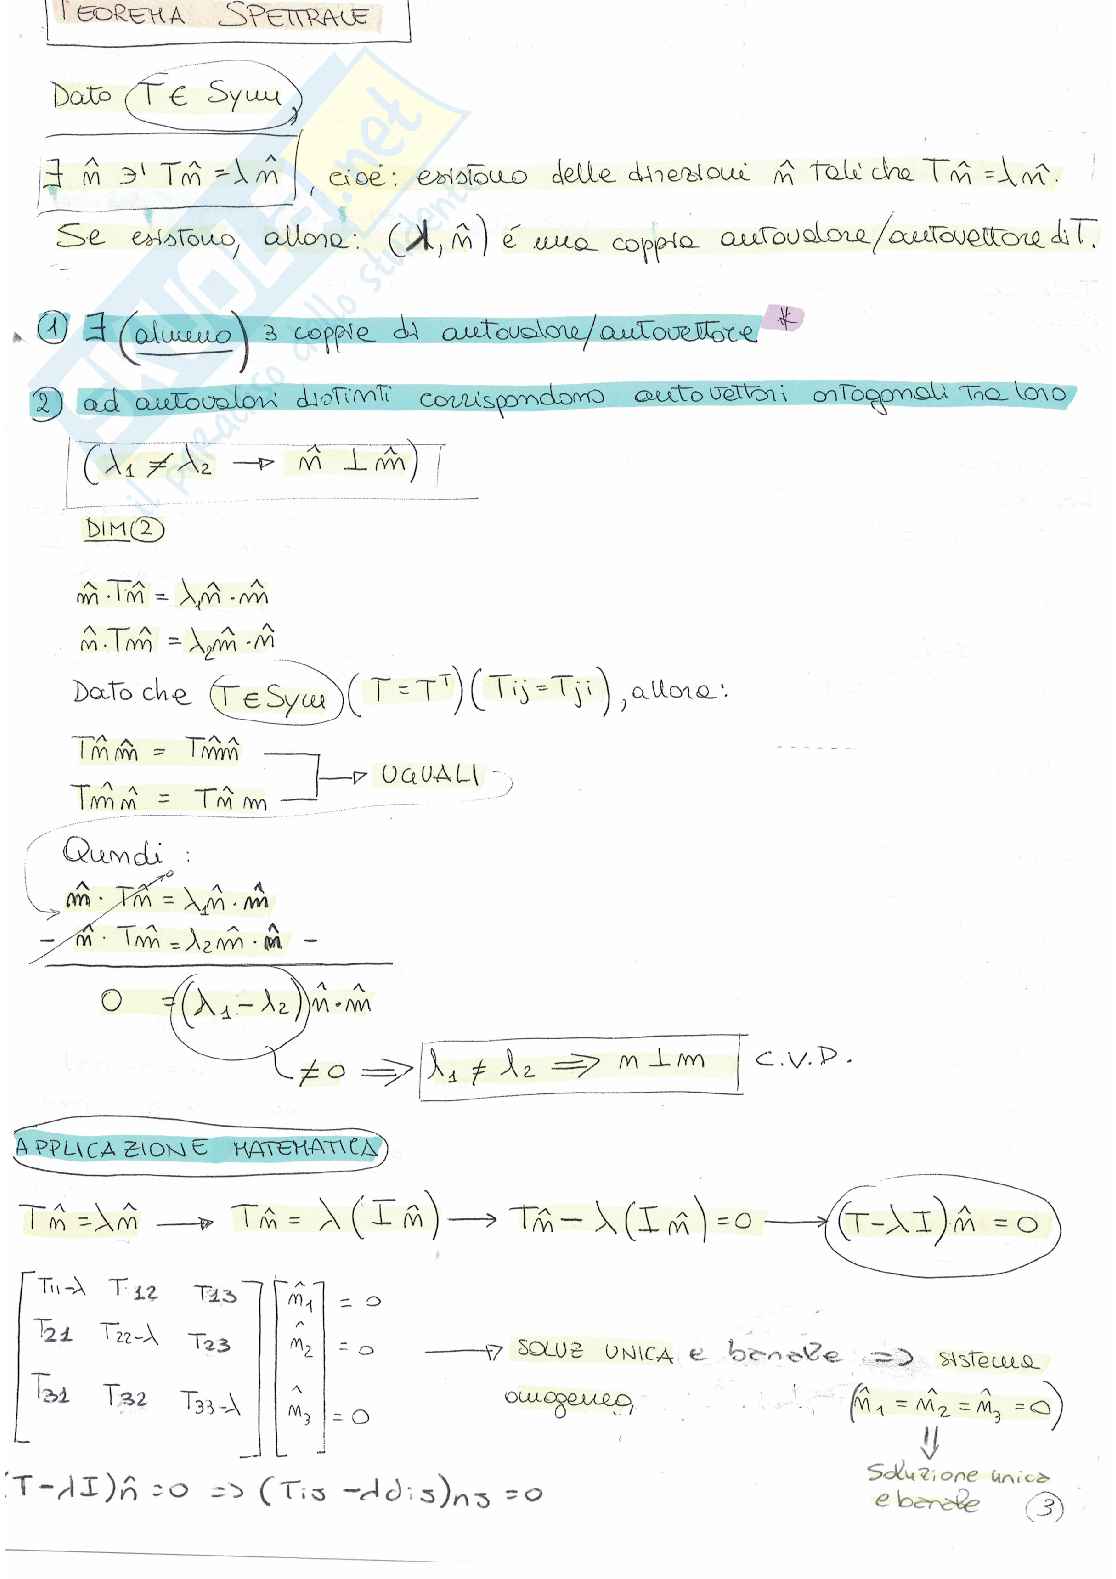 TEOREMA SPETTRALE
Dato T ∈ Sym,
∃ n̂ ∋' Tn̂ = λn̂, cioé: esistono delle direzioni n̂ tali che Tn̂ = λn̂.
Se esistono, allora: (λ, n̂) é una coppia autovalore/autovettore di T.
① ∃ (almeno) 3 coppie di autovalore/autovettore *
② ad autovalori distinti corrispondono autovettori ortogonali tra loro
(λ1 ≠ λ2 → n̂ ⊥ m̂)
DIM ②
m̂ · Tn̂ = λ1n̂ · m̂
n̂ · Tm̂ = λ2m̂ · n̂
Dato che T ∈ Sym (T = Tᵀ) (Tij = Tji), allora:
Tn̂ m̂ = Tm̂n̂
Tm̂ n̂ = Tn̂ m
→ UGUALI
Quindi :
m̂ · Tn̂ = λ1n̂ · m̂
- n̂ · Tm̂ = λ2m̂ · n̂ -
0 = (λ1 - λ2) n̂ · m̂
≠ 0 ⇒ λ1 ≠ λ2 ⇒ n ⊥ m C.V.D.
APPLICAZIONE MATEMATICA
Tn̂ = λn̂ → Tn̂ = λ(I n̂) → Tn̂ - λ(I n̂) = 0 → (T - λI)n̂ = 0
T11-λ T12 T13 n̂1 = 0
T21 T22-λ T23 n̂2 = 0 → SOLUZ UNICA e banale ⇒ sistema
omogeneo,
T31 T32 T33-λ n̂3 = 0 (n̂1 = n̂2 = n̂3 = 0)
⇓
Soluzione unica
e banale
(T - λI)n̂ = 0 ⇒ (Tij - λδij)nj = 0
3
SKUOLA.net
il paradiso dello studente